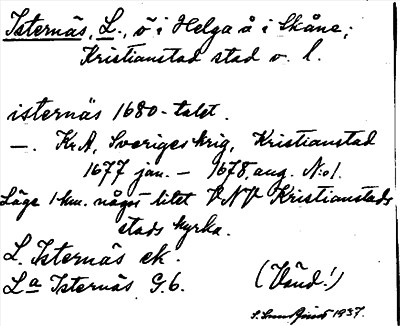 Isternäs, L., ö i Helga å i Skåne;
Kristianstad stad o. l.
isternäs 1680-talet.
—. KrA, Sveriges krig, Kristianstad
1677 jan. – 1678 aug. N:o 1.
Läge 1 km. något litet VNV Kristianstads
stads kyrka.
L. Isternäs ek.
La Isternäs G.6.
(Vänd!)
1937.